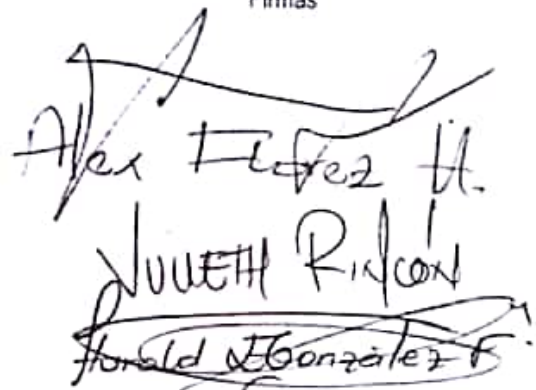 Firmas
Alex Florez H.
Yulieth Rincón
Harold González F.